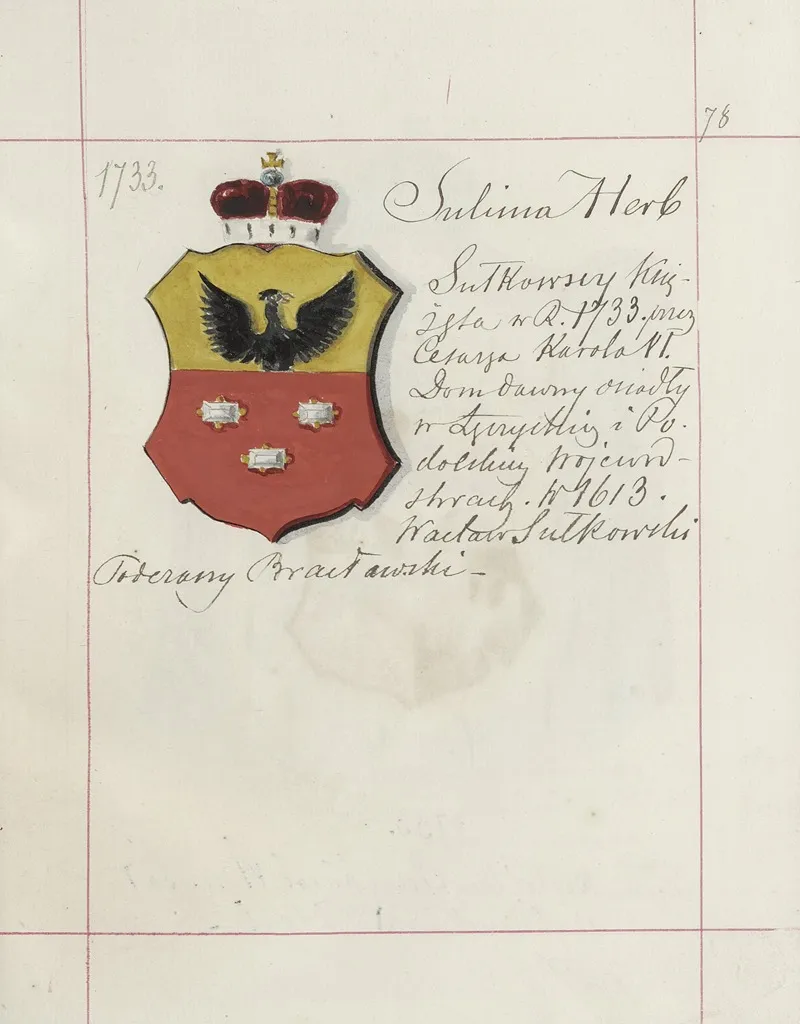 78
1733.
Sulima Herb
Sułkowscy Ksią-
żęta w R. 1733. przez
Cesarza Karola VI.
Dom dawny osiadły
w Łęczyckiem i Po-
dolskiem Wojewódz-
twach. W 1613.
Wacław Sułkowski
Podczaszy Bracławski –